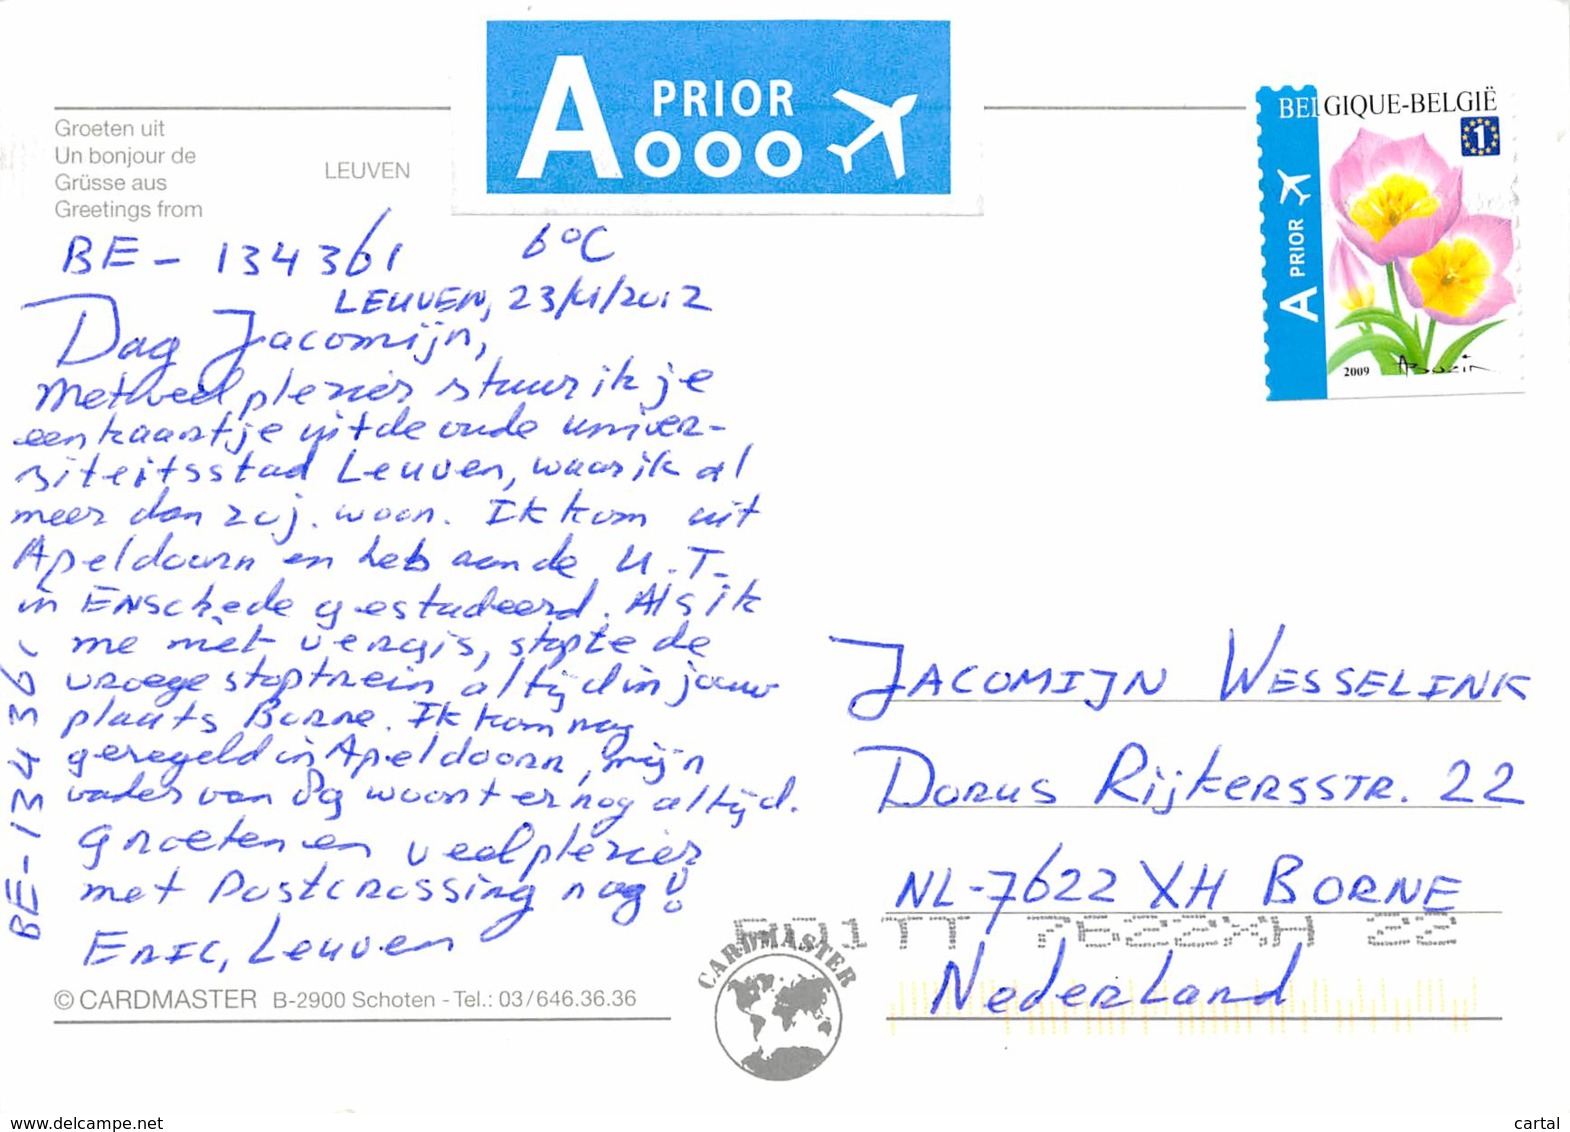 A PRIOR
BELGIQUE-BELGIË
1
A PRIOR
2009
Groeten uit
Un bonjour de
Grüsse aus
Greetings from
LEUVEN
BE - 134361 6°C
LEUVEN, 23/XI/2012
Dag Jacomijn,
Met veel plezier stuur ik je
een kaartje uit de oude univer-
siteitsstad Leuven, waar ik al
meer dan 20 j. woon. Ik kom uit
Apeldoorn en heb aan de U.T.
in ENSchede gestudeerd. Als ik
me niet vergis, stopte de
vroege stoptrein altijd in jouw
plaats Borne. Ik kom nog
geregeld in Apeldoorn, mijn
vader van 89 woont er nog altijd.
Groeten en veel plezier
met Postcrossing nog!
ERIC, Leuven
BE-134361
© CARDMASTER B-2900 Schoten - Tel.: 03/646.36.36
CARDMASTER
JACOMIJN WESSELINK
DORUS RIJKERSSTR. 22
NL-7622 XH BORNE
7622XH 22
NEDERLAND
www.delcampe.net
cartal